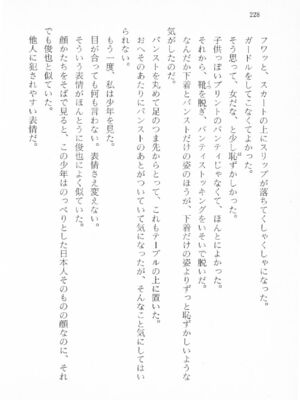 228
フワッと、スカートの上にスリップが落ちてくしゃくしゃになった。
ガードルをしてこなくてよかった。
そう思って、女だな、と少し恥ずかしかった。
子供っぽいプリントのパンティじゃなくて、ほんとによかった。
それから、靴を脱ぎ、パンティストッキングをいそいで脱いだ。
なんだか下着とパンストだけの姿のほうが、下着だけの姿よりずっと恥ずかしいような
気がしたのだ。
パンストを丸めて足のつま先からとって、これもテーブルの上に置いた。
おへそのあたりにパンストのあとがついていて気になったが、そんなこと気にしてはい
られない。
もう一度、私は少年を見た。
目が合っても何も言わない。表情さえ変えない。
そういう表情がほんとうに俊也によく似ていた。
顔かたちをそばで見ると、この少年はのっぺりとした日本人そのものの顔なのに、それ
でも俊也と似ていた。
他人に犯されやすい表情だ。